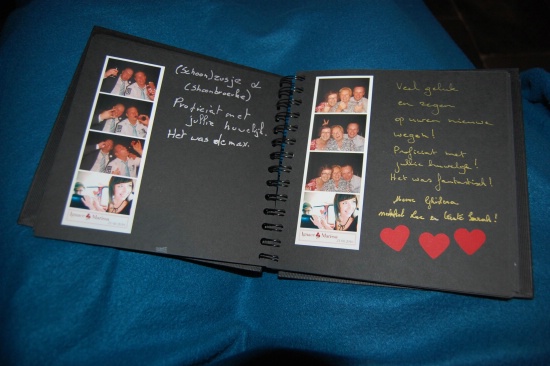 (Schoon)zusje &
(schoonbroertje)
Proficiat met
jullie huwelijk.
Het was de max.
Veel geluk
en zegen
op uren nieuwe
wegen!
Proficiat met
jullie huwelijk!
Het was fantastisch!
en tante Sarah!